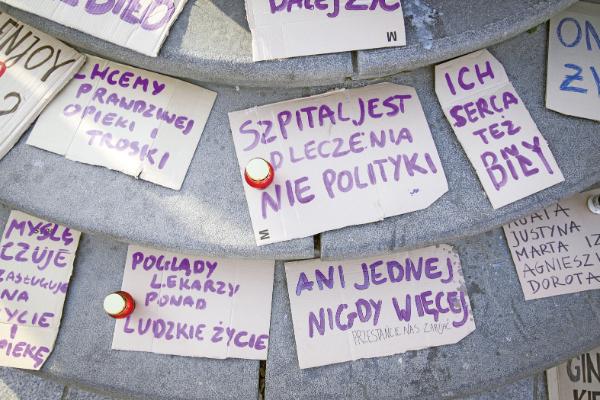 DALEJ ŻYĆ
M
ENJOY
?
CHCEMY
PRAWDZIWEJ
OPIEKI I
TROSKI
SZPITAL JEST
OD LECZENIA
NIE POLITYKI
M
ICH
SERCA
TEŻ
BIŁY
MYŚLĘ
CZUJĘ
ZASŁUGUJĘ
NA
ŻYCIE
I
OPIEKĘ
POGLĄDY
LEKARZY
PONAD
LUDZKIE ŻYCIE
ANI JEDNEJ
NIGDY WIĘCEJ
PRZESTAŃCIE NAS ZABIJAĆ
AGATA
JUSTYNA
MARTA IZ
AGNIESZ
DOROTA
GIN